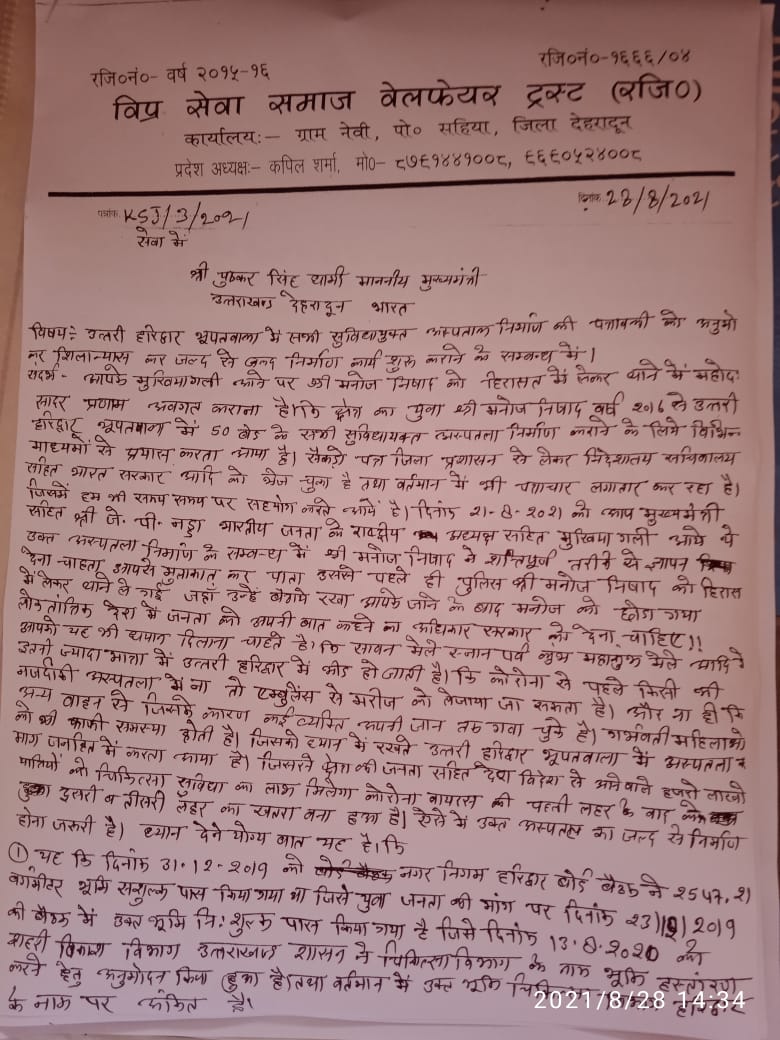 रजि०नं०- वर्ष २०१५-१६
रजि०नं०-१६६६/०४
विप्र सेवा समाज वेलफेयर ट्रस्ट (रजि०)
कार्यालयः- ग्राम नेवी, पो० सहिया, जिला देहरादून
प्रदेश अध्यक्षः- कपिल शर्मा, मो०- ८७९१४४१००८, ६६६०५२४००८
पत्रांक KSJ/3/2021
दिनांक 28/8/2021
सेवा में
श्री पुष्कर सिंह धामी माननीय मुख्यमंत्री
उत्तराखण्ड देहरादून भारत
विषय:- उत्तरी हरिद्वार भूपतवाला में सभी सुविधायुक्त अस्पताल निर्माण की पत्रावली को अनुमो
कर शिलान्यास कर जल्द से जल्द निर्माण कार्य शुरू कराने के सम्बन्ध में।
संदर्भ - आपके मुखियागली आने पर श्री मनोज निषाद को हिरासत में लेकर थाने में महोदः
सादर प्रणाम अवगत कराना है। कि क्षेत्र का युवा श्री मनोज निषाद वर्ष 2016 से उत्तरी
हरिद्वार भूपतवाला में 50 बेड के सभी सुविधायक्त अस्पतला निर्माण कराने के लिये विभिन्न
माध्यमों से प्रयास करता आया है। सैकड़ो पत्र जिला प्रशासन से लेकर निदेशालय सचिवालय
सहित भारत सरकार आदि को भेज चुका है तथा वर्तमान में भी पत्राचार लगातार कर रहा है।
जिसमें हम भी समय समय पर सहयोग करते आये है। दिनांक 21-8-2021 को आप मुख्यमंत्री
सहित श्री जे. पी. नड्डा भारतीय जनता के राष्ट्रीय अध्यक्ष सहित मुखिया गली आये थे
उक्त अस्पतला निर्माण के सम्बन्ध में श्री मनोज निषाद ने शान्तिपूर्ण तरीके ये ज्ञापन
देना चाहता आपसे मुलाकात कर पाता उससे पहले ही पुलिस श्री मनोज निषाद को हिरास
में लेकर थाने ले गई जहाँ उन्हें बैठाये रखा आपके जाने के बाद मनोज को छोडा गया
लोकतांत्रिक देश में जनता को अपनी बात कहने का अधिकार सरकार को देना चाहिए।।
आपको यह भी ध्यान दिलाना चाहते है। कि सावन मेले स्नान पर्व कुम्भ महाकुम्भ मेले आदि में
उतनी ज्यादा मात्रा में उत्तरी हरिद्वार में भीड हो जाती है। कि कोरोना से पहले किसी भी
नजदीकी अस्पतला में ना तो एम्बुलेंस से मरीज को लेजाया जा सकता है। और ना ही कि
अन्य वाहन से जिसके कारण कई व्यक्ति अपनी जान तक गवा चुके है। गर्भवती महिलाओ
को भी काफी समस्या होती है। जिसको ध्यान में रखते उत्तरी हरिद्वार भूपतवाला में अस्पतला
मांग जनहित में करता आया है। जिससे क्षेत्र की जनता सहित देश विदेश से आनेवाले हजारो लाखो
यात्रियों को चिकित्सा सुविधा का लाभ मिलेगा कोरोना वायरस की पहली लहर के बाद
दुसरी व तीसरी लहर का खतरा बना हुआ है। ऐसे में उक्त अस्पतला का जल्द से निर्माण
होना जरूरी है। ध्यान देने योग्य बात यह है। कि
① यह कि दिनांक 31.12.2019 को नगर निगम हरिद्वार बोर्ड बैठक ने 2547.21
वर्गमीटर भूमि सशुल्क पास किया गया था जिसे युवा जनता की मांग पर दिनांक 23/12/2019
की बैठक में उक्त भूमि नि: शुल्क पास किया गया है जिसे दिनांक 13.8.2020 को
शहरी विकास विभाग उत्तराखण्ड शासन ने चिकित्सा विभाग के नाम भूमि हस्तांतरण
करने हेतु अनुमोदन किया हुका है। तथा वर्तमान में उक्त भूमि हरिद्वार
के नाम पर अंकित है।
2021/8/28 14:34